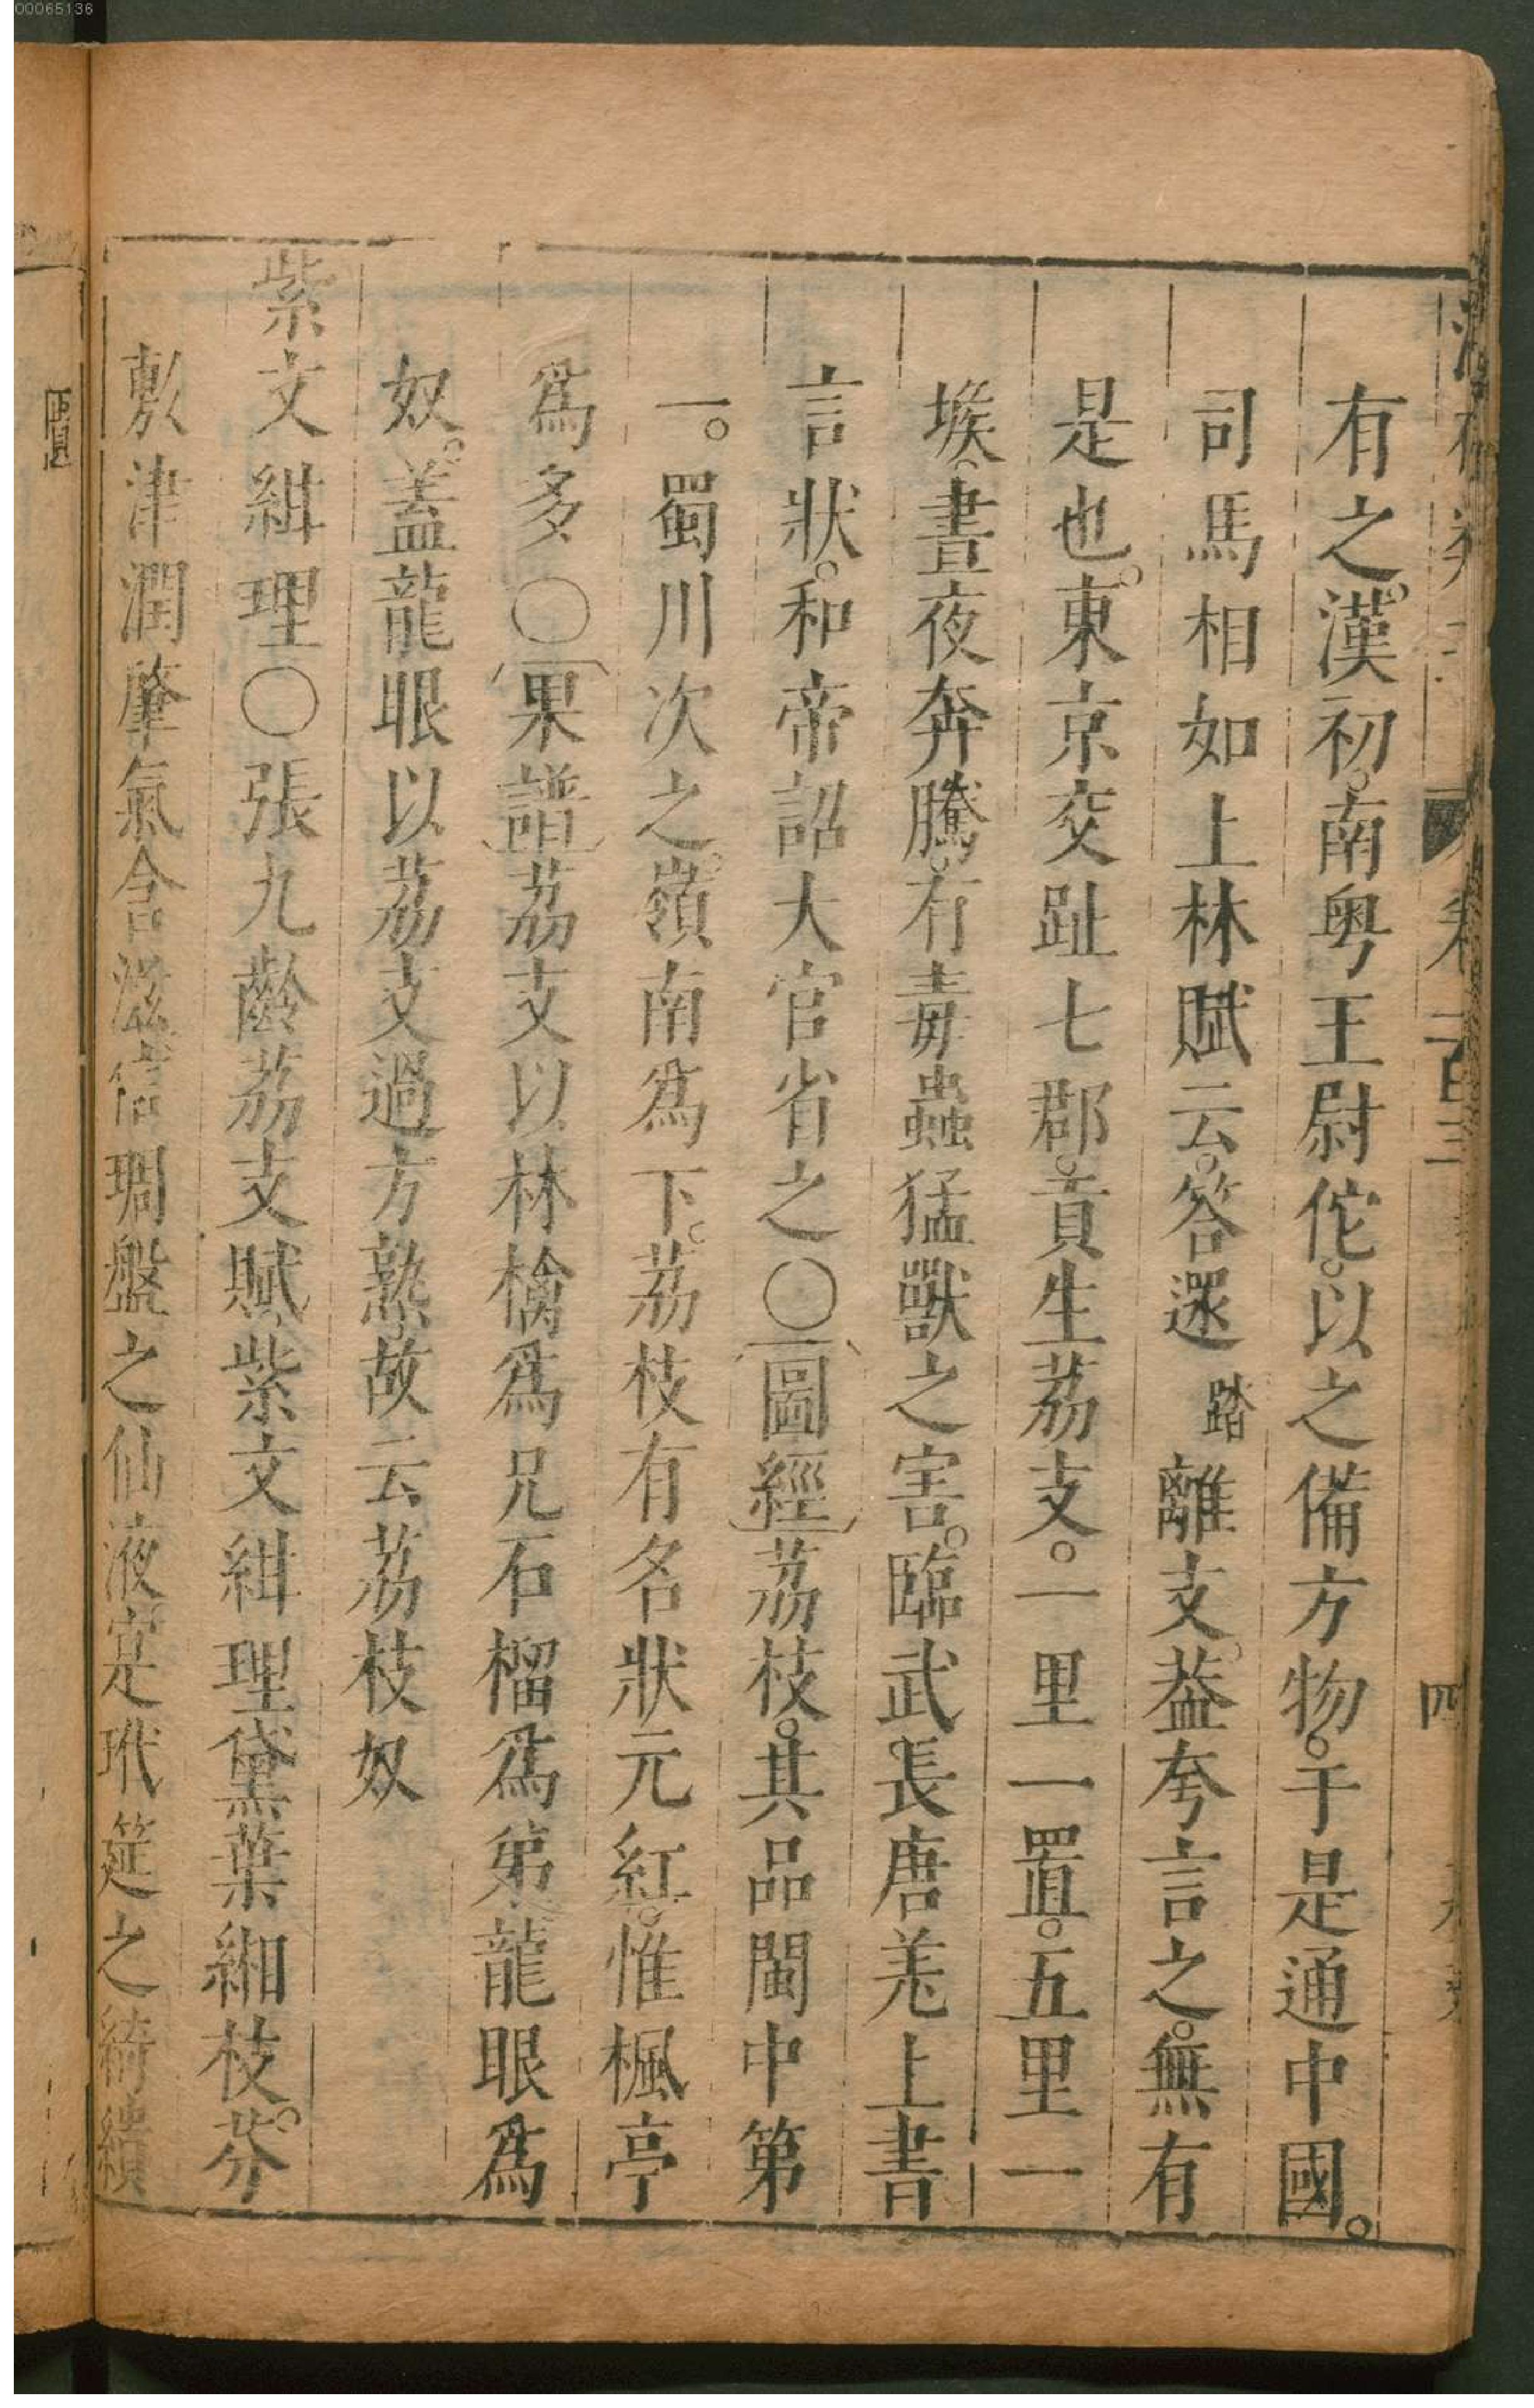 00065136
有之。漢初。南粤王尉佗。以之備方物。于是通中國。
司馬相如上林賦云。答遝踏離支。葢夸言之。無有
是也。東京交趾七郡。貢生荔支。一里一置。五里一
堠。晝夜奔騰。有毒蟲猛獸之害。臨武長唐羌上書
言狀。和帝詔大官省之〇圖經荔枝。其品閩中第
一。蜀川次之。嶺南為下。荔枝有名狀元紅。惟楓亭
為多〇果譜荔支以林檎為兄石榴為弟龍眼為
奴。蓋龍眼以荔支過方熟故云荔枝奴
紫文紺理〇張九齡荔支賦。紫文紺理黛葉緗枝。芬
敷津潤肇氣含滋偕琱盤之仙液寔玳筵之綺繢
卷二百三
四